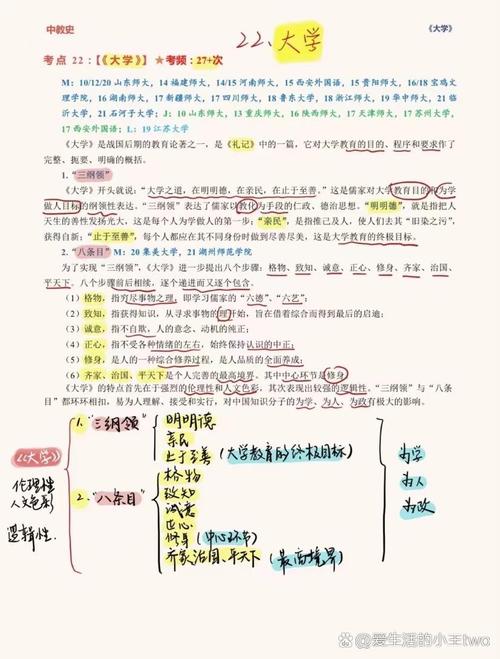 中教史
《大学》
22、大学
考点 22：【《大学》】★考频：27+次
M：10/12/20 山东师大，14 福建师大，14/15 河南师大，15 西安外国语，15 贵阳师大，16/18 宝鸡文
理学院，16 湖南师大，17 新疆师大，17 四川师大，18 鲁东大学，18 浙江师大，19 华中师大，21 临
沂大学，21 石河子大学；J：10 山东师大，13 重庆师大，16 陕西师大，17 天津师大，17 苏州大学，
17 西安外国语；L：19 江苏大学
《大学》是战国后期的教育论著之一，是《礼记》中的一篇，它对大学教育的目的、程序和要求作了
完整、扼要、明确的概括。
1.“三纲领”
《大学》开头就说：“大学之道，在明明德，在亲民，在止于至善。”这是儒家对大学教育目的和为学
做人目标的纲领性表达。“三纲领”表达了儒家以教化为手段的仁政、德治思想。“明明德”，就是指把人
天生的善性发扬光大，这是每个人为学做人的第一步；“亲民”，是指推己及人，使人们去其“旧染之污”，
获得自新；“止于至善”，每个人都应在其不同身份时做到尽善尽美，这是大学教育的终极目标。
2.“八条目”M：20 集美大学，21 湖州师范学院
为了实现“三纲领”，《大学》进一步提出八个步骤：格物、致知、诚意、正心、修身、齐家、治国、
平天下。八个步骤前后相续，逐个递进而又逐个包含。
（1）格物，指穷尽事物之理，即学习儒家的“六德”、“六艺”；
（2）致知，指获得知识，从寻求事物的理开始，旨在借着综合而得到最后的启迪；
（3）诚意，指不自欺，人的意念、动机的纯正；
（4）正心，指不受各种情绪的左右，始终保持认识的中正；
（5）修身，是人的一种综合修养过程，是人品质的全面养成；
（6）齐家、治国、平天下是个人完善的最高境界。其中中心环节是修身
《大学》的特点首先在于强烈的伦理性和人文色彩，其次表现出较强的逻辑性。“三纲领”与“八条
目”都环环相扣，易为人理解、接受和实行，对中国知识分子的为学、为人、为政有极大的影响。
1.“三纲领”
明明德
亲民
止于至善（大学教育的终极目标）
《大学》
伦理性
人文色彩
逻辑性.
2.“八条目”
格物
致知
诚意
正心
修身（中心环节）
齐家治国、平天下（最高境界）
为学
为人
为政
知乎 @爱生活的小王two